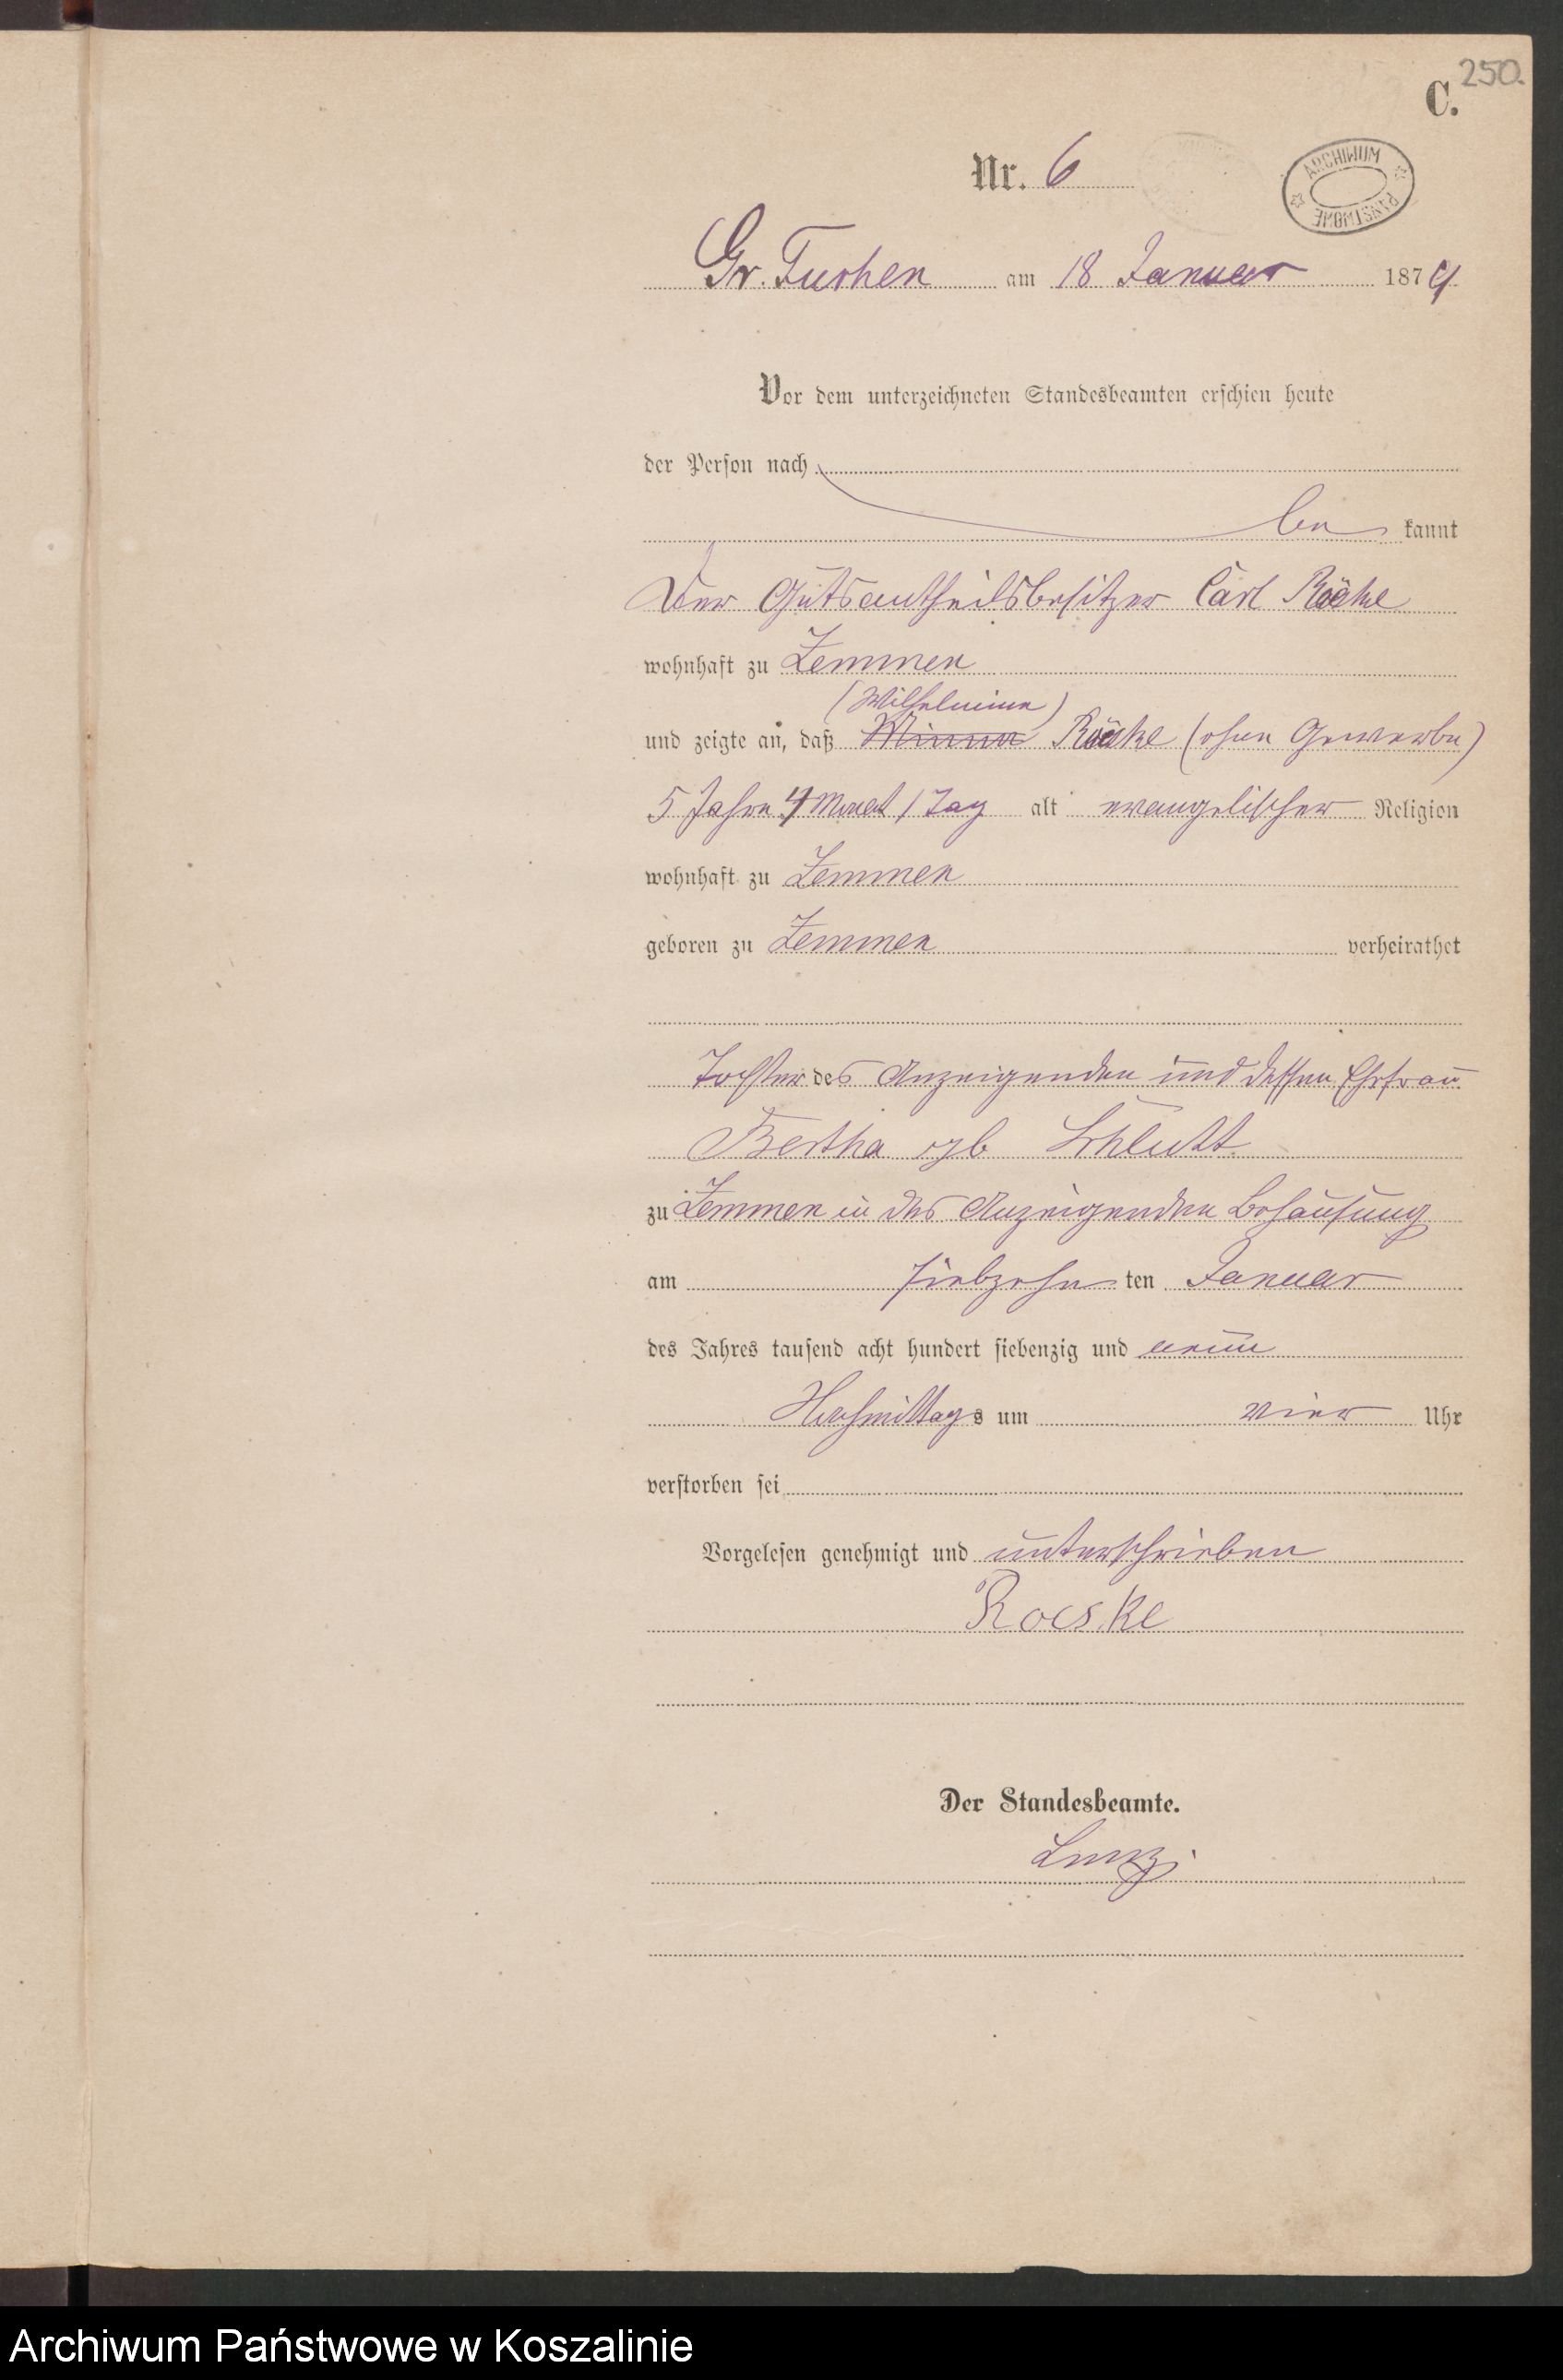 250.
C.
Nr. 6
ARCHIWUM PAŃSTWOWE
Gr. Tuchen am 18 Januar 1879
Vor dem unterzeichneten Standesbeamten erschien heute
der Person nach
be kannt
Der Gutsantheilsbesitzer Carl Röske
wohnhaft zu Zemmen
(Wilhelmine)
und zeigte an, daß Minna Röske (ohne Gewerbe)
5 Jahre 4 Monat 1 Tag alt evangelischer Religion
wohnhaft zu Zemmen
geboren zu Zemmen verheirathet
Tochter des Anzeigenden und dessen Ehefrau
Bertha geb
zu Zemmen in des Anzeigenden Behausung
am siebzehn ten Januar
des Jahres tausend acht hundert siebenzig und neun
Nachmittags um vier Uhr
verstorben sei
Vorgelesen genehmigt und unterschrieben
Roeske
Der Standesbeamte.
Archiwum Państwowe w Koszalinie